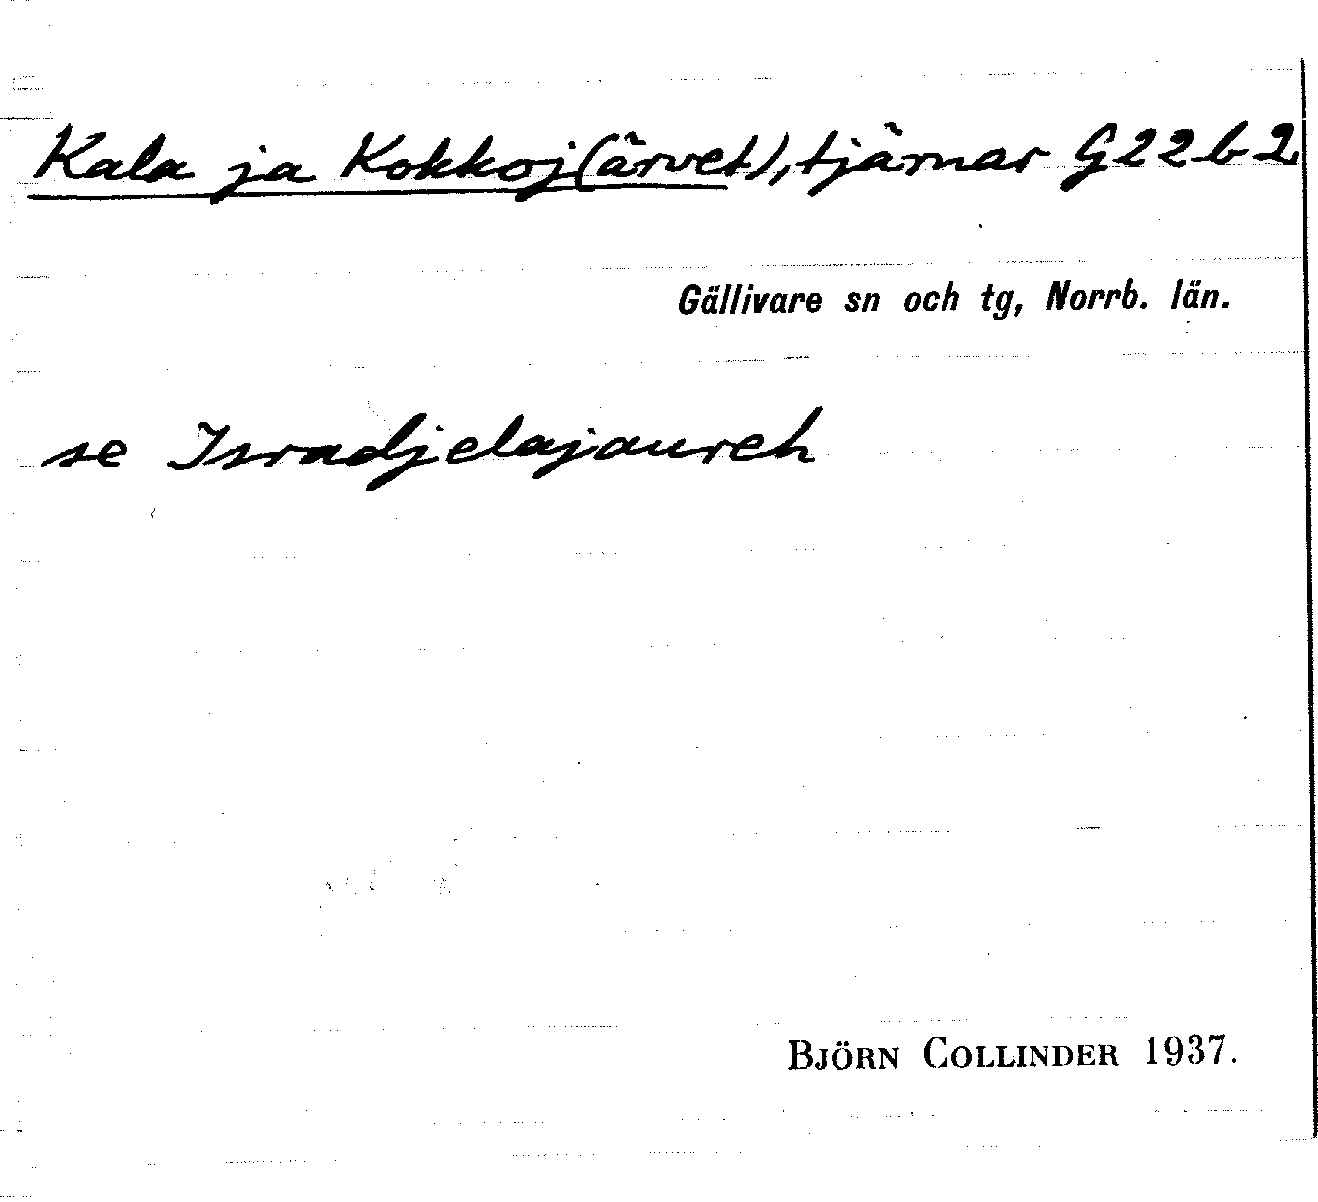 Kala ja Kokkoj(ärvet), tjärnar G22b2
Gällivare sn och tg, Norrb. län.
se Isradjelajaureh
BJÖRN COLLINDER 1937.